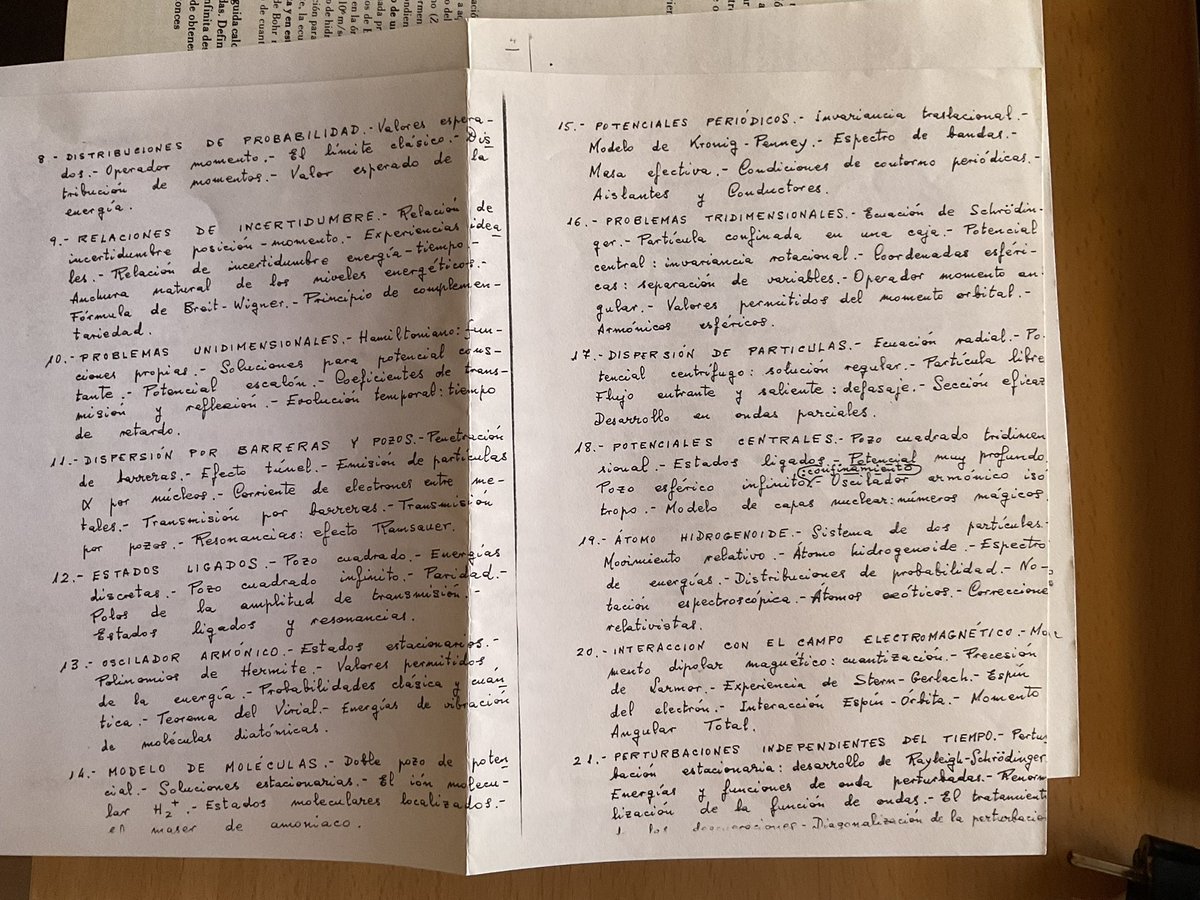 8 - DISTRIBUCIONES DE PROBABILIDAD.- Valores espera-
dos.- Operador momento.- El límite clásico.- Dis
tribución de momentos.- Valor esperado de la
energía.
9.- RELACIONES DE INCERTIDUMBRE.- Relación de
incertidumbre posición-momento.- Experiencias idea
les.- Relación de incertidumbre energía-tiempo.-
Anchura natural de los niveles energéticos.-
Fórmula de Breit-Wigner.- Principio de complemen-
tariedad.
10.- PROBLEMAS UNIDIMENSIONALES.- Hamiltoniano: fun-
ciones propias.- Soluciones para potencial cons-
tante.- Potencial escalón.- Coeficientes de trans-
misión y reflexión.- Evolución temporal: tiempo
de retardo.
11.- DISPERSIÓN POR BARRERAS Y POZOS.- Penetración
de barreras.- Efecto túnel.- Emisión de partículas
α por núcleos.- Corriente de electrones entre me-
tales.- Transmisión por barreras.- Transmisión
por pozos.- Resonancias: efecto Ramsauer.
12.- ESTADOS LIGADOS.- Pozo cuadrado.- Energías
discretas.- Pozo cuadrado infinito.- Paridad.-
Polos de la amplitud de transmisión.-
Estados ligados y resonancias.
13.- OSCILADOR ARMÓNICO.- Estados estacionarios.-
Polinomios de Hermite.- Valores permitidos
de la energía.- Probabilidades clásica y cuán
tica.- Teorema del Virial.- Energías de vibración
de moléculas diatómicas.
14.- MODELO DE MOLÉCULAS.- Doble pozo de poten
cial.- Soluciones estacionarias.- El ión molecu-
lar H₂⁺.- Estados moleculares localizados.-
el maser de amoniaco.
15.- POTENCIALES PERIÓDICOS.- Invariancia traslacional.-
Modelo de Kronig-Penney.- Espectro de bandas.-
Masa efectiva.- Condiciones de contorno periódicas.-
Aislantes y Conductores.
16.- PROBLEMAS TRIDIMENSIONALES.- Ecuación de Schrödin-
ger.- Partícula confinada en una caja.- Potencial
central: invariancia rotacional.- Coordenadas esféri-
cas: separación de variables.- Operador momento an-
gular.- Valores permitidos del momento orbital.-
Armónicos esféricos.
17.- DISPERSIÓN DE PARTICULAS.- Ecuación radial.- Po
tencial centrífugo: solución regular.- Partícula libre
Flujo entrante y saliente: defasaje.- Sección eficaz
Desarrollo en ondas parciales.
18.- POTENCIALES CENTRALES.- Pozo cuadrado tridimen
sional.- Estados ligados.- Potencial muy profundo
: confinamiento
Pozo esférico infinito.- Oscilador armónico isó
tropo.- Modelo de capas nuclear: números mágicos
19.- ÁTOMO HIDROGENOIDE.- Sistema de dos partículas.
Movimiento relativo.- Átomo hidrogenoide.- Espectro
de energías.- Distribuciones de probabilidad.- No-
tación espectroscópica.- Átomos exóticos.- Correccione
relativistas.
20.- INTERACCION CON EL CAMPO ELECTROMAGNÉTICO.- Mo
mento dipolar magnético: cuantización.- Precesión
de Larmor.- Experiencia de Stern-Gerlach.- Espín
del electrón.- Interacción Espín-Órbita.- Momento
Angular Total.
21.- PERTURBACIONES INDEPENDIENTES DEL TIEMPO.- Pertur
bación estacionaria: desarrollo de Rayleigh-Schrödinger
Energías y funciones de onda perturbadas.- Renorm
lización de la función de ondas.- El tratamiento
degeneraciones.- Diagonalización de la perturbación